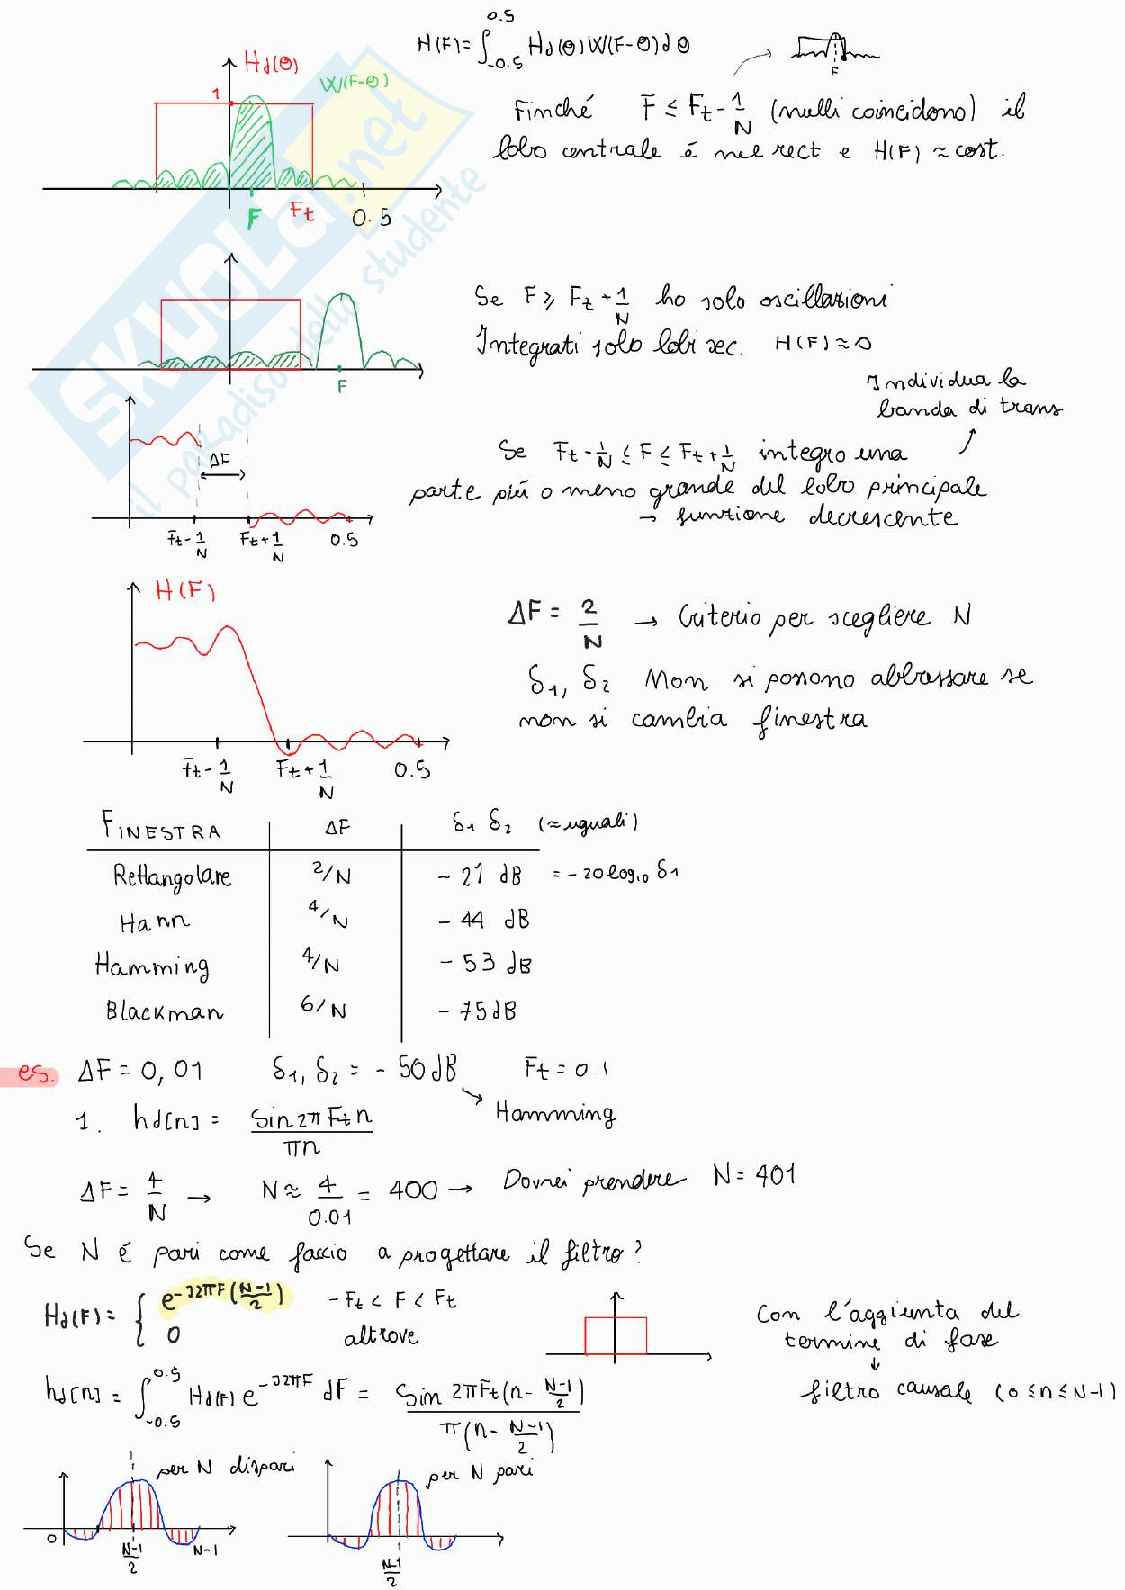 H(F)=∫_{-0.5}^{0.5} Hd(Θ)W(F-Θ)dΘ
F
Hd(Θ)
W(F-Θ)
1
F
Ft
0.5
Finché F ≤ Ft - 1/N (nulli coincidono) il
lobo centrale é nel rect e H(F) ≈ cost.
Se F ≥ Ft + 1/N ho solo oscillazioni
Integrati solo lobi sec. H(F) ≈ 0
F
Individua la
banda di trans
Se Ft - 1/N ≤ F ≤ Ft + 1/N integro una
parte piú o meno grande del lobo principale
→ funzione decrescente
ΔF
Ft - 1/N
Ft + 1/N
0.5
H(F)
ΔF = 2/N → Criterio per scegliere N
δ1, δ2 Non si possono abbassare se
non si cambia finestra
Ft - 1/N
Ft + 1/N
0.5
FINESTRA ΔF δ1 δ2 (≈uguali)
Rettangolare 2/N - 21 dB = -20log10 δ1
Hann 4/N - 44 dB
Hamming 4/N - 53 dB
Blackman 6/N - 75dB
es. ΔF = 0,01 δ1, δ2 = - 50 dB Ft = 0 1
→ Hamming
1. hd[n] = sin2πFtn / πn
ΔF = 4/N → N ≈ 4/0.01 = 400 → Dovrei prendere N = 401
Se N é pari come faccio a progettare il filtro?
Hd(F) = { e^{-J2πF((N-1)/2)} -Ft < F < Ft
0 altrove
Con l'aggiunta del
termine di fase
↓
filtro causale (0 ≤ n ≤ N-1)
hd[n] = ∫_{-0.5}^{0.5} Hd(F) e^{-J2πF} dF = sin 2πFt(n - (N-1)/2) / π(n - (N-1)/2)
per N dispari
0
(N-1)/2
N-1
per N pari
(N-1)/2
SKUOLA.net
il paradiso dello studente